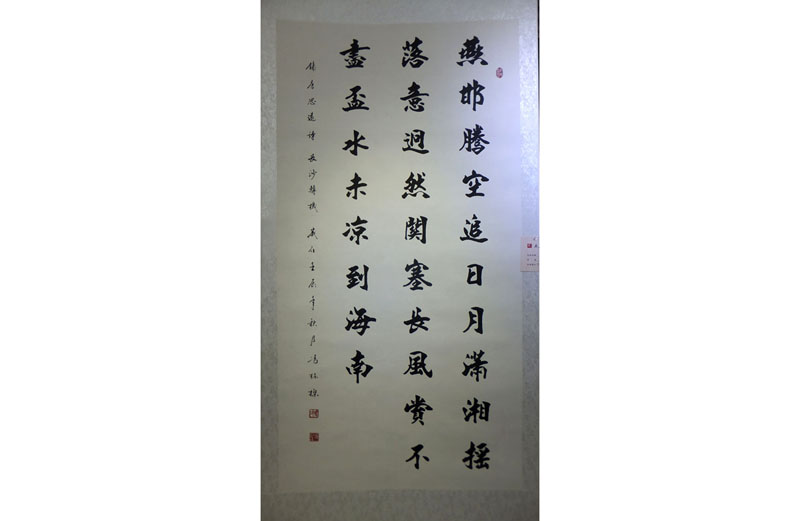 燕邯腾空追日月潇湘摇
落意迥然関塞長風赏不
盡盃水未凉到海南
錄唐思遠詩 長沙轉機 歲在壬辰年秋月馮